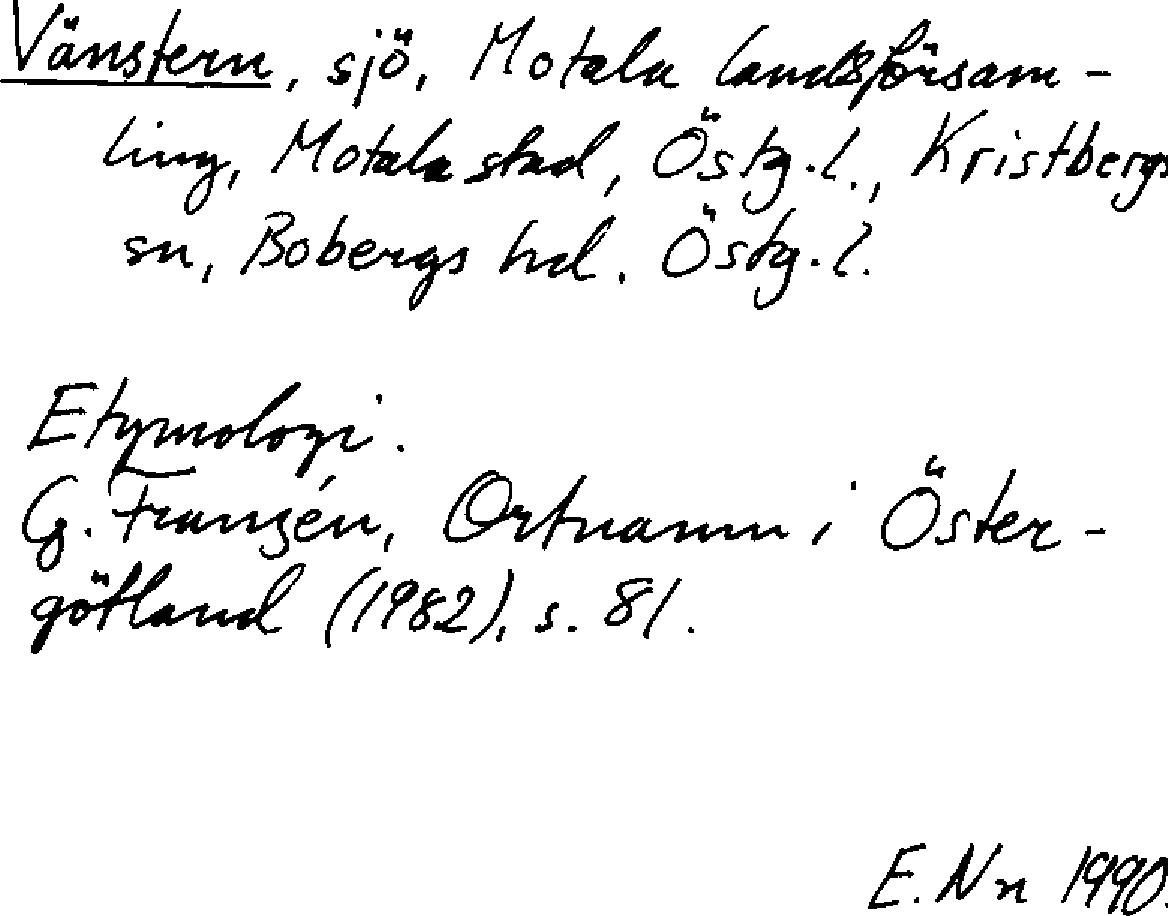 Vänstern, sjö, Motala landsförsam-
ling, Motala stad, Östg.l., Kristbergs
sn, Bobergs hd. Östg.l.
Etymologi.
G. Franzén, Ortnamn i Öster-
götland (1982), s. 81.
E. Nn 1990.